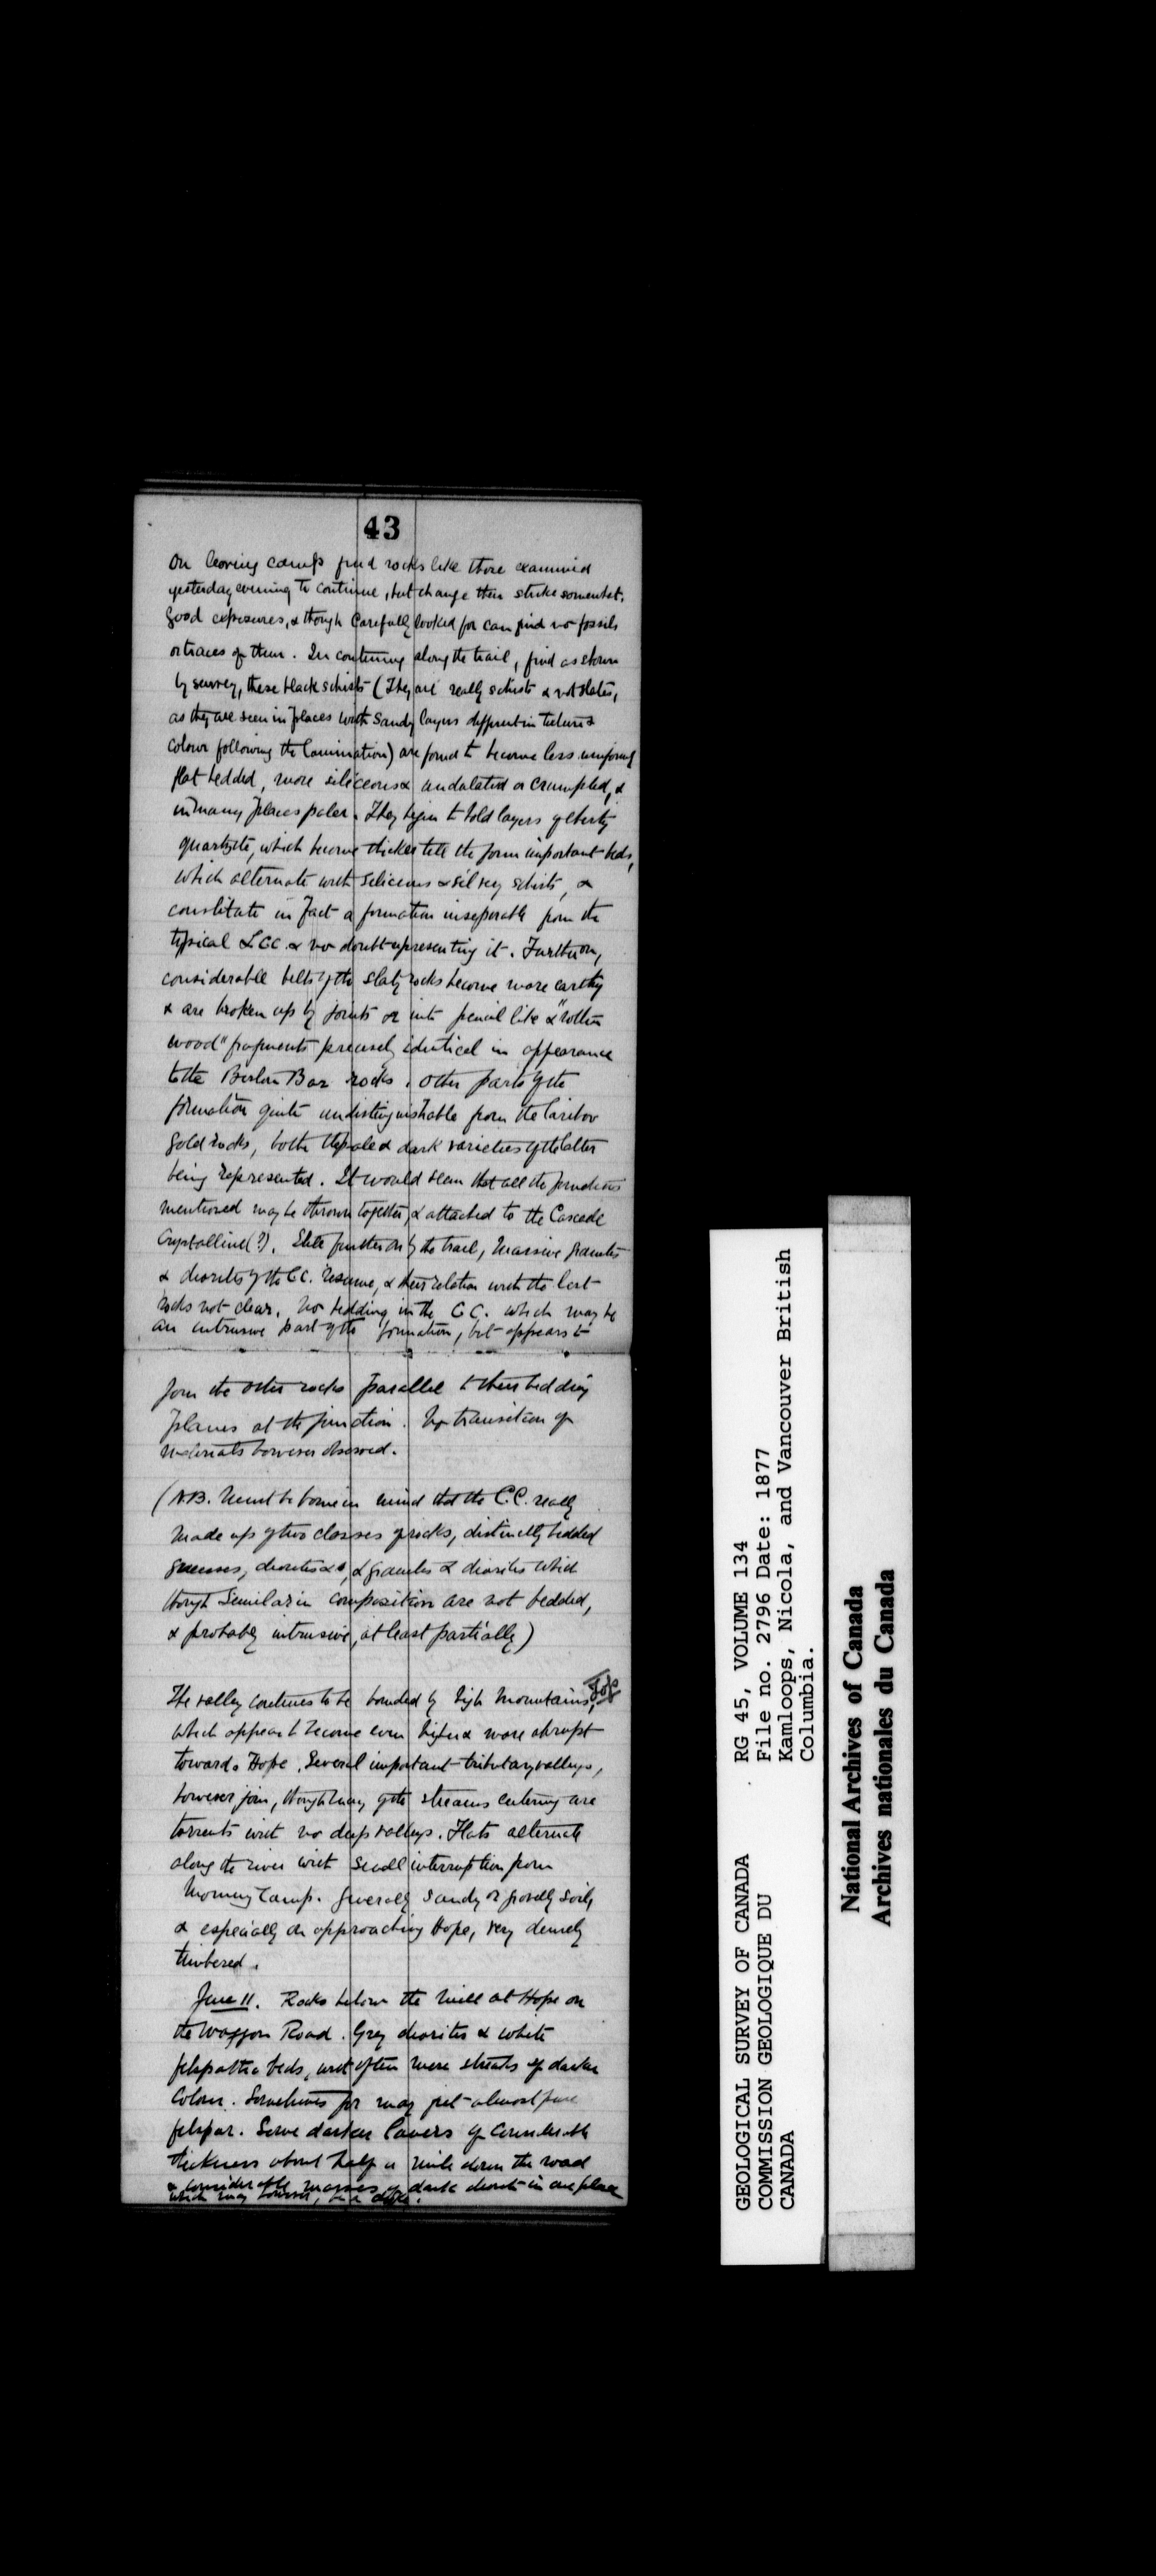 43
On leaving camp find rocks like those examined
yesterday evening to continue, but change their strike somewhat.
Good exposures, & though carefully looked for can find no fossils
or traces of them. In continuing along the trail, find as shown
by survey, these black schists (They are really schists & not slates,
as they are seen in places with sandy layers different in texture &
colour following the lamination) are found to become less uniformly
flat bedded, more siliceous & undulated or crumpled, &
in many places paler. They begin to hold layers of cherty
quartzite, which become thicker till the form important beds,
which alternate with siliceous & silvery schists, &
constitute in fact a formation inseperable from the
typical L.C.C. & no doubt representing it. Further on,
considerable belts of the slaty rocks become more earthy
& are broken up by joints or into pencil like & "rotten
wood" fragments precisely identical in appearance
to the Boston Bar rocks. Other parts of the
formation quite undistinguishable from the Cariboo
gold rocks, both the pale & dark varieties of the latter
being represented. It would seem that all the formations
mentioned may be thrown together, & attached to the Cascade
Crystalline(?). Still further on by the trail, massive granites
& diorites of the C.C. resume, & their relation with the last
rocks not clear. No bedding in the C.C. which may be
an intrusive part of the formation, but appears to
join the other rocks parallel to their bedding
planes at the junction. No transition of
materials however observed.
(N.B. Must be borne in mind that the C.C. really
made up of two classes of rocks, distinctly bedded
gneisses, diorites &c, & granites & diorites which
though similar in composition are not bedded,
& probably intrusive, at least partially)
The valley continues to be bounded by high mountains, Top
which appear to become even higher & more abrupt
towards Hope. Several important tributary valleys,
however join, though many of the streams entering are
torrents with no deep valleys. Flats alternate
along the river with small interruption from
Morning Camp. Generally sandy or gravelly soil,
& especially on approaching Hope, very densely
timbered.
June 11. Rocks below the mill at Hope on
the Waggon Road. Grey diorites & white
felspathic beds, with often mere streaks of darker
colour. Sometimes for may feet almost pure
felspar. Some darker layers of considerable
thickness about half a mile down the road
& considerable masses of dark diorite in one place
which may however, be a dyke.
GEOLOGICAL SURVEY OF CANADA
COMMISSION GEOLOGIQUE DU
CANADA
RG 45, VOLUME 134
File no. 2796 Date: 1877
Kamloops, Nicola, and Vancouver British
Columbia.
National Archives of Canada
Archives nationales du Canada